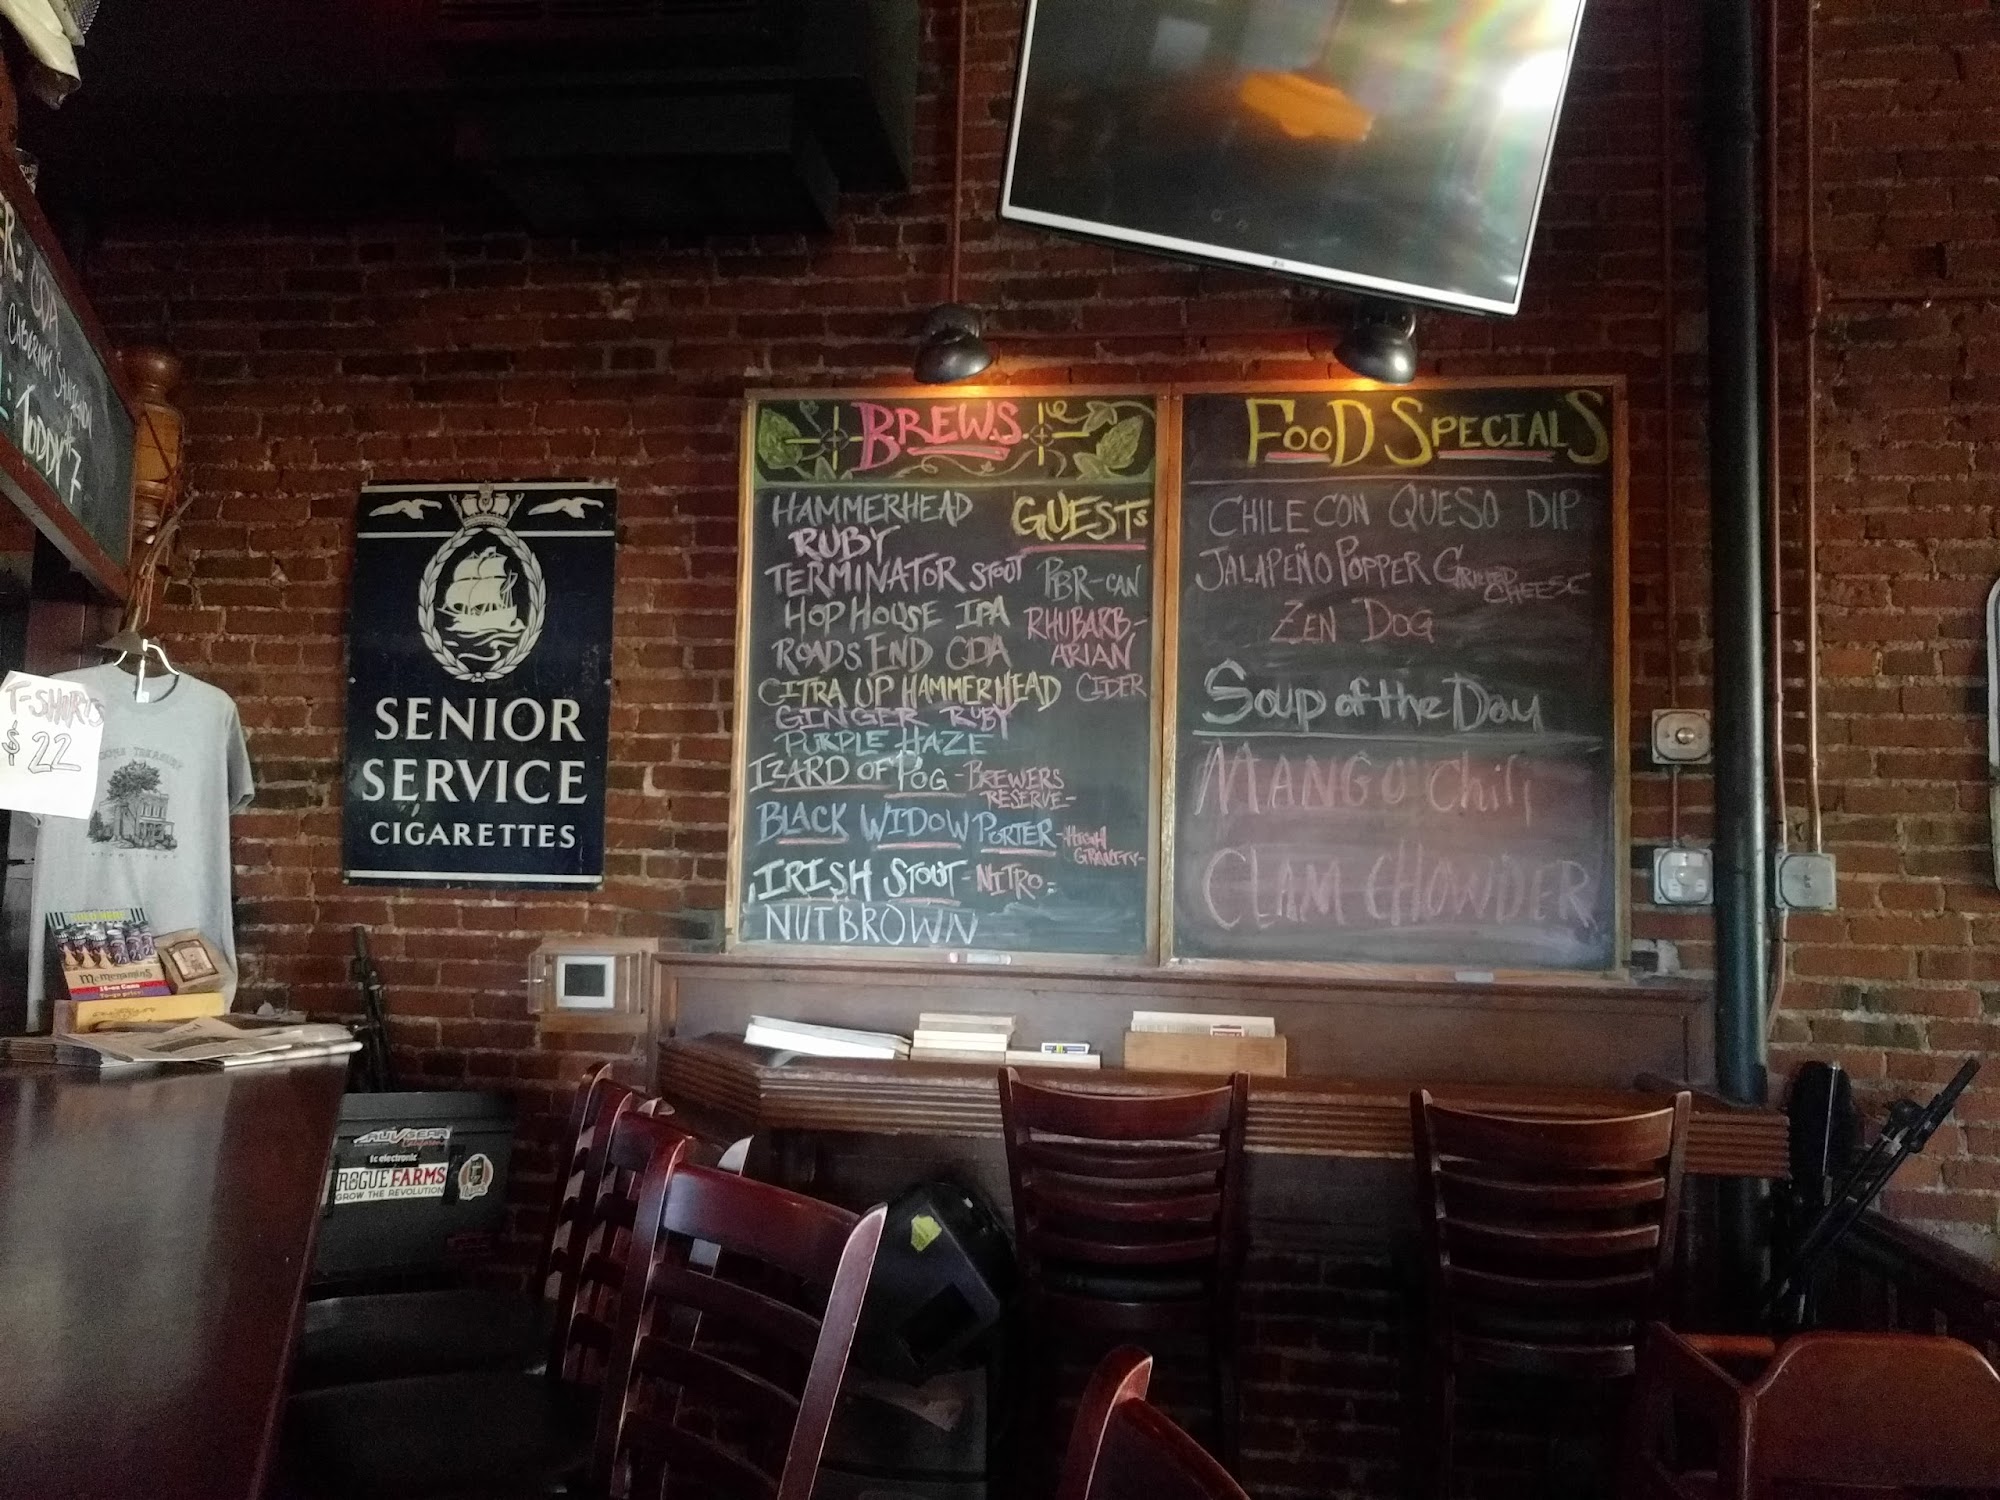 CDA
CABERNET SAUVIGNON
TODDY $7
T-SHIRTS
$22
McMenamins
SENIOR
SERVICE
CIGARETTES
ROGUE FARMS
GROW THE REVOLUTION
tc electronic
BREWS
HAMMERHEAD
RUBY
TERMINATOR STOUT
HOP HOUSE IPA
ROADS END CDA
CITRA UP HAMMERHEAD
GINGER RUBY
PURPLE HAZE
IZARD OF POG - BREWERS
RESERVE-
BLACK WIDOW PORTER -HIGH
GRAVITY-
IRISH STOUT - NITRO -
NUTBROWN
GUESTS
PBR-CAN
RHUBARB-
ARIAN
CIDER
FOOD SPECIALS
CHILE CON QUESO DIP
JALAPEÑO POPPER GRILLED
CHEESE
ZEN DOG
Soup of the Day
MANGO Chili
CLAM CHOWDER
LG